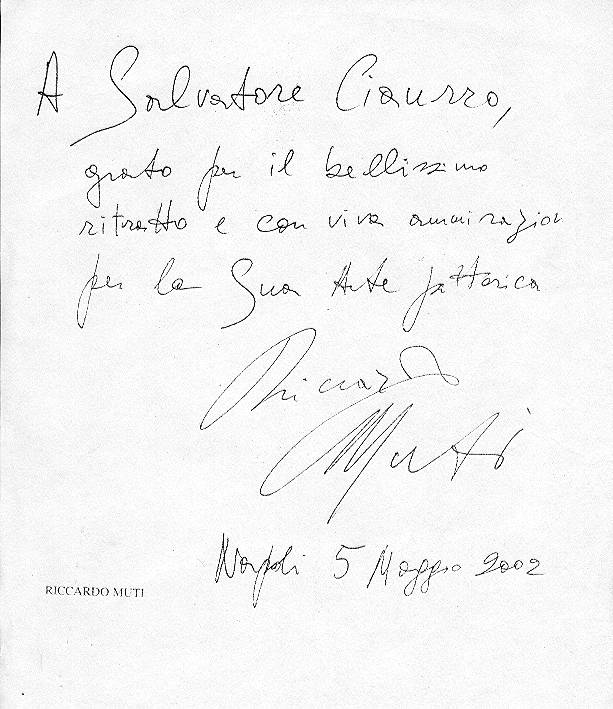 A Salvatore Ciaurro,
grato per il bellissimo
ritratto e con viva ammirazion
per la Sua Arte pittorica
Riccardo
Muti
Napoli 5 Maggio 2002
RICCARDO MUTI